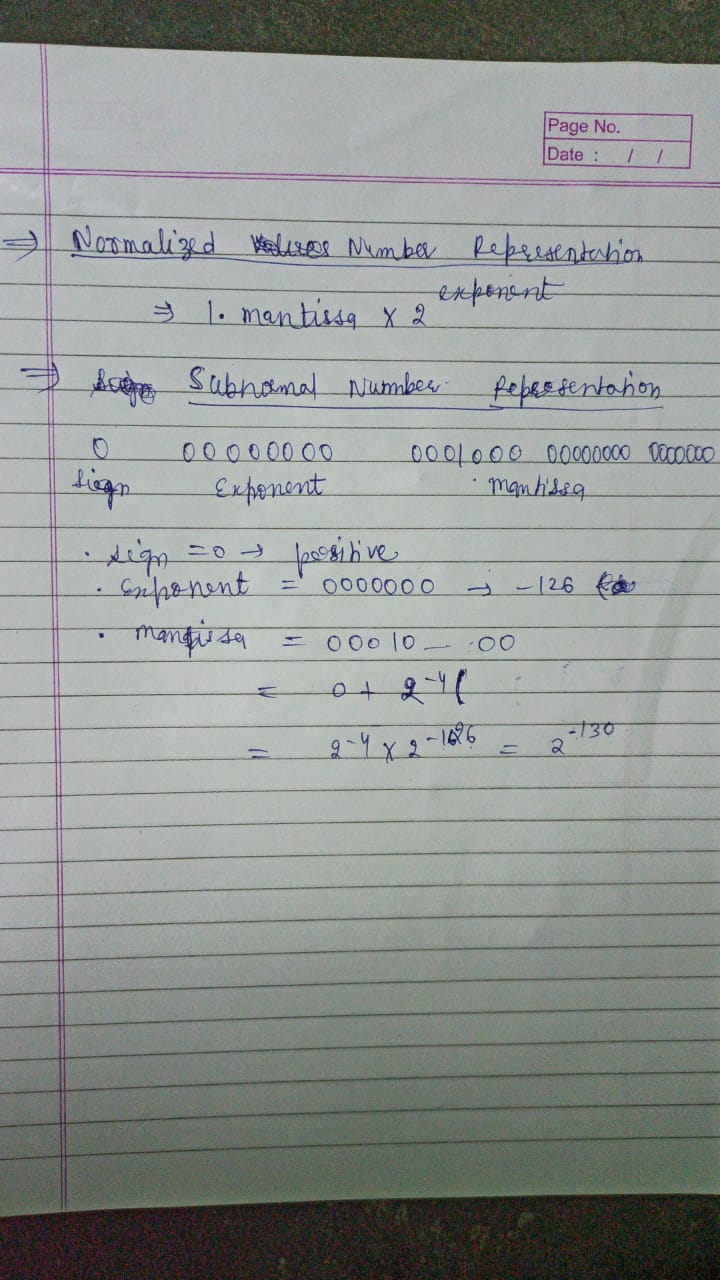 Page No.
Date : / /
⇒ Normalized Number Representation
⇒ 1. mantissa x 2 exponent
⇒ Subnormal Number Representation
0 00000000 0001000 00000000 0000000
Sign Exponent mantissa
. sign = 0 → positive
. Exponent = 0000000 → -126
. mantissa = 00010 — .00
= 0 + 2^-4 (
= 2^-4 x 2^-126 = 2^-130